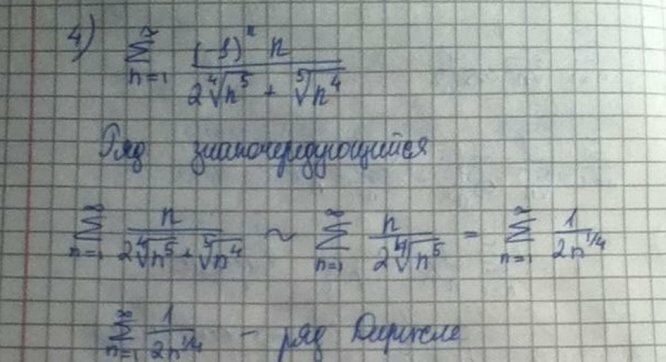 4) ∑_{n=1}^{∞} (-1)^n n / (2∜n⁵ + ⁵√n⁴)
Ряд знакочередующийся
∑_{n=1}^{∞} n / (2∜n⁵ + ⁵√n⁴) ~ ∑_{n=1}^{∞} n / (2∜n⁵) = ∑_{n=1}^{∞} 1 / (2n^{1/4})
∑_{n=1}^{∞} 1 / (2n^{1/4}) - ряд Дирихле